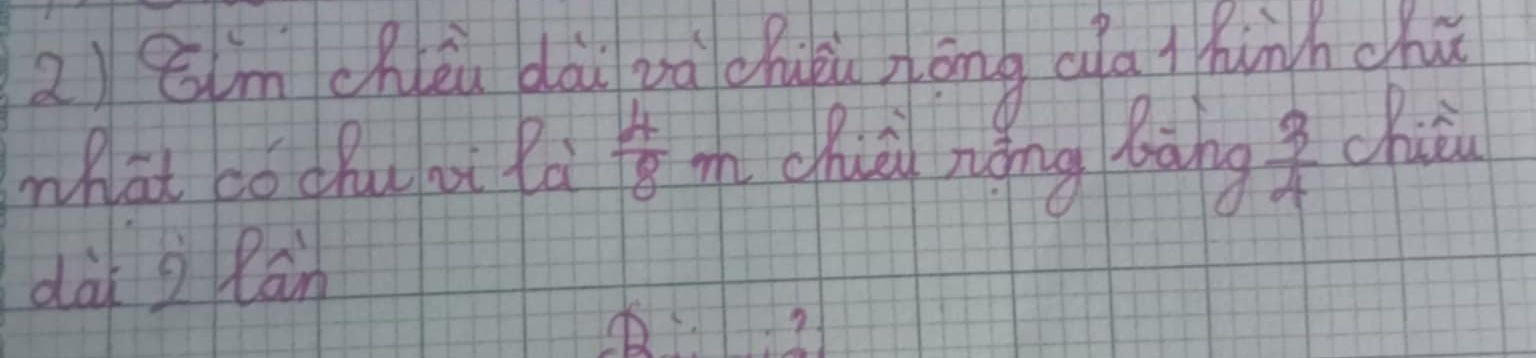 2) Tìm chiều dài và chiều rộng của 1 hình chữ
nhật có chu vi là 4/8 m chiều rộng bằng 3/4 chiều
dài 2 lần